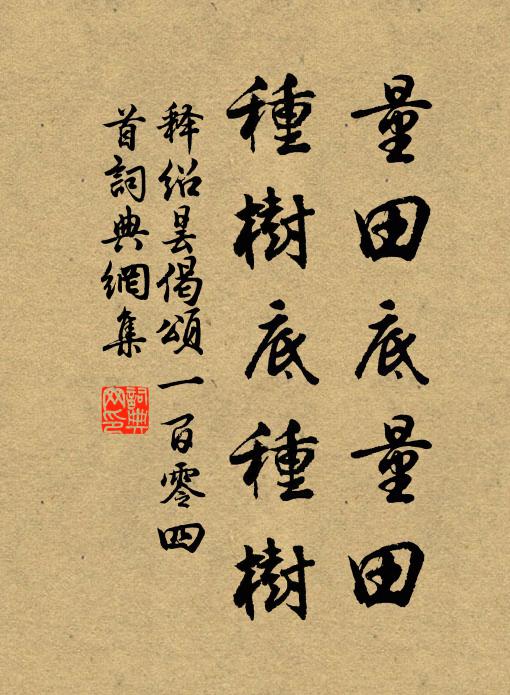 量田底量田
種樹底種樹
釋紹昙偈頌一百零四
首詞典網集
詞典网印